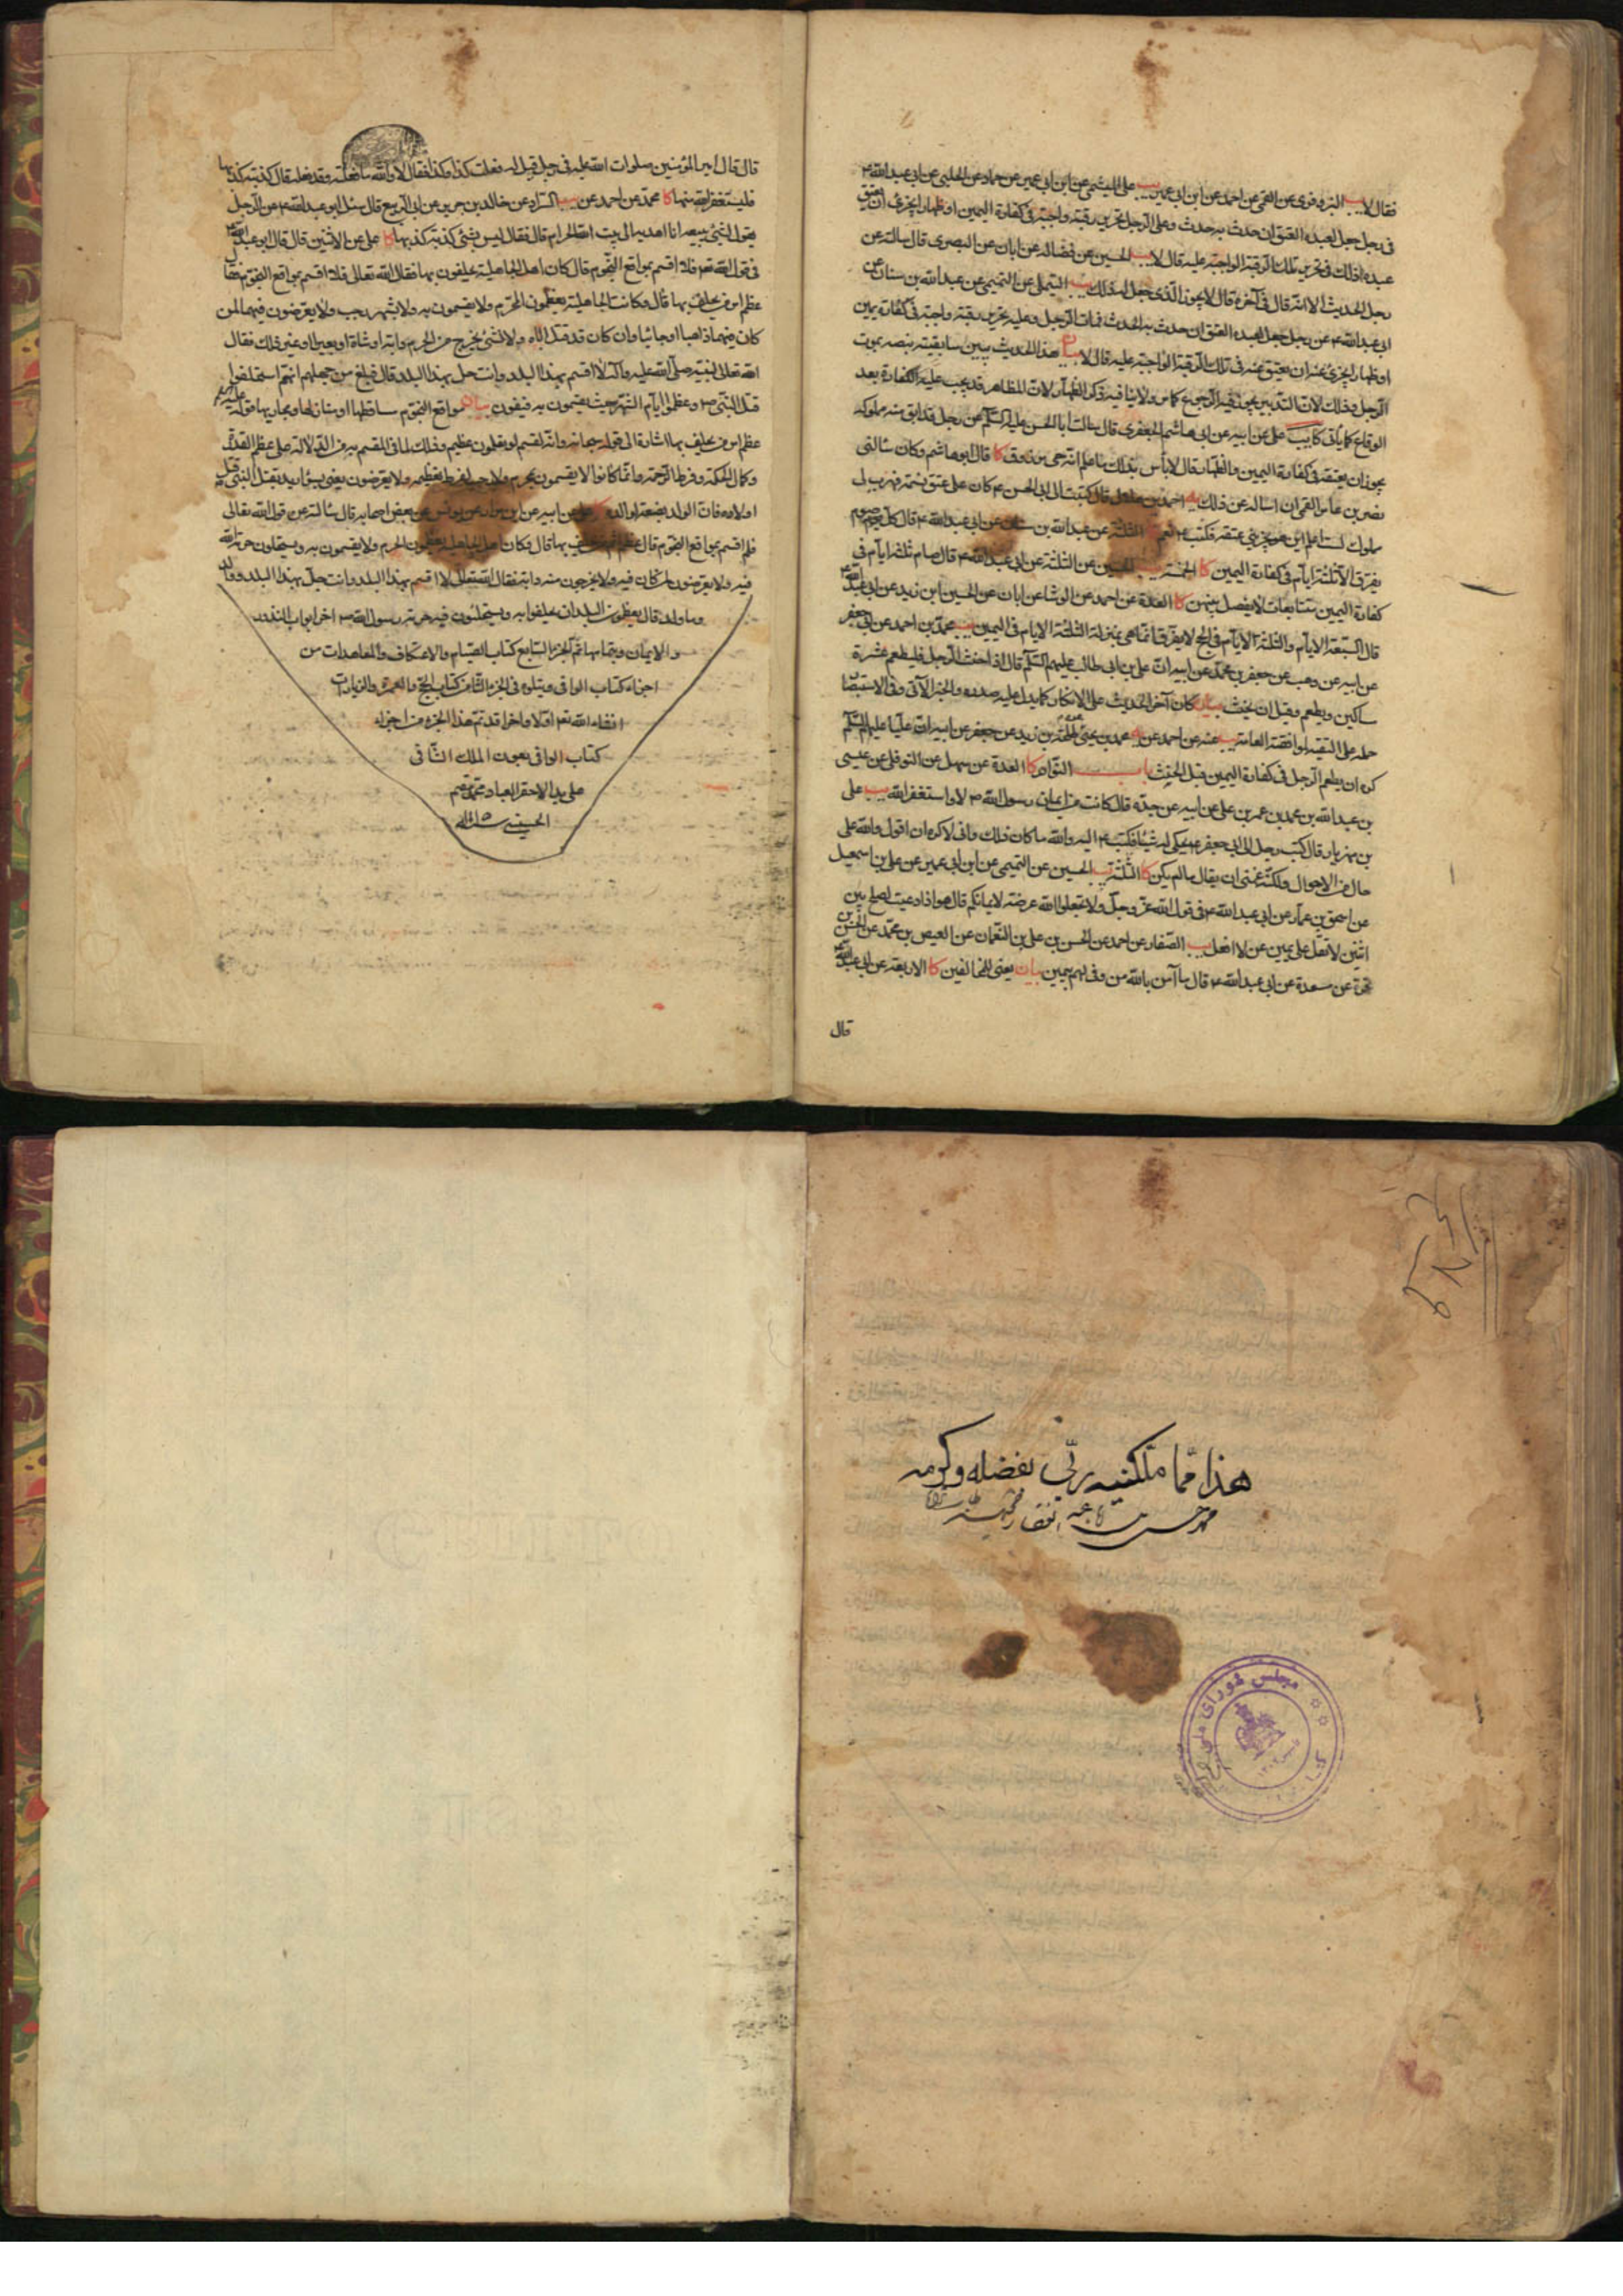 فقال لا يب البزوفري عن القمي عن احمد عن ابن ابي عمير يب علي الميثمي عن ابن ابي عمير عن حماد عن الحلبي عن ابي عبد الله ع
في رجل جعل لعبده العتق ان حدث به حدث وعلى الرجل تحرير رقبة واجبة في كفارة اليمين او ظهار ايجزي ان يعتق
عبده ذلك في تحرير تلك الرقبة الواجبة عليه قال لا يب الحسين عن فضالة عن ابان عن البصري قال سالته عن
رجل الحديث الا انه قال في آخره قال لا يجوز الذي جعل له ذلك يب التيملي عن التميمي عن عبد الله بن سنان عن
ابي عبد الله ع عن رجل جعل لعبده العتق ان حدث به الحدث فمات الرجل وعليه تحرير رقبة واجبة في كفارة يمين
او ظهار ايجزي عنه ان يعتق عنه في تلك الرقبة الواجبة عليه قال لا بيان هذا الحديث يبين سابقيه بموت
الرجل وذلك لان التدبير يجوز فيه الرجوع كما مر ولا ينافيه ذكر الظهار لان المظاهر قد يجب عليه الكفارة بعد
الوقاع كما ياتي كا يب علي عن ابيه عن ابي هاشم الجعفري قال سالت ابا الحسن عليه السلم عن رجل قد ابق منه مملوكه
يجوز ان يعتقه في كفارة اليمين والظهار قال لا باس بذلك ما علم انه حي مرزوق كا قال ابو هاشم وكان سالني
نصر بن عامر القمي ان اساله عن ذلك يه احمد بن هلال قال كتبت الى ابي الحسن ع كان علي عتق نسمة فهرب لي
مملوك لست اعلم اين هو يجزيني عتقه فكتب ع نعم الثلثة عن عبد الله بن سنان عن ابي عبد الله ع قال كل صوم
يفرق الا ثلثة ايام في كفارة اليمين كا الخمسة يب الحسين عن الثلثة عن ابي عبد الله ع قال صيام ثلثة ايام في
كفارة اليمين متتابعات لا يفصل بينهن كا العدة عن احمد عن الوشا عن ابان عن الحسين ابن زيد عن ابي عبد الله ع
قال السبعة الايام والثلثة الايام في الحج لا يفرق انما هي بمنزلة الثلثة الايام في اليمين يب محمد بن احمد عن ابي جعفر
عن ابيه عن وهب عن جعفر بن محمد عن ابيه ان علي بن ابي طالب عليهم السلم قال اذا حنث الرجل فليطعم عشرة
مساكين ويطعم قبل ان يحنث بيان كان آخر الحديث على الانكار كما يدل عليه صدره والخبر الآتي وفي الاستبصار
حمله على التقية لموافقته العامة يب عنه عن احمد عن محمد بن يحيى عن طلحة بن زيد عن جعفر عن ابيه ان عليا عليهم السلم
كره ان يطعم الرجل في كفارة اليمين قبل الحنث باب النوادر كا العدة عن سهل عن النوفلي عن عيسى
بن عبد الله بن محمد بن عمر بن علي عن ابيه عن جده قال كانت من ايمان رسول الله ص لا واستغفر الله يب علي
بن مهزيار قال كتب رجل الى ابي جعفر ع يحكي له شيئا فكتب ع اليه والله ما كان ذلك واني لاكره ان اقول والله على
حال من الاحوال ولكنه غمني ان يقال ما لم يكن كا الثلثة يب الحسين عن التميمي عن ابن ابي عمير عن علي بن اسمعيل
عن اسحق بن عمار عن ابي عبد الله ع في قول الله عز وجل ولا تجعلوا الله عرضة لايمانكم قال هو اذا دعيت لصلح بين
اثنين لا تقل علي يمين عن لا افعل يب الصفار عن احمد عن الحسن بن علي بن النعمان عن العيص بن محمد عن الحسن بن
قرة عن مسعدة عن ابي عبد الله ع قال ما آمن بالله من وفى لهم بيمين بيان يعني للمخالفين كا الاربعة عن ابي عبد الله ع
قال
قال قال امير المؤمنين صلوات الله عليه في رجل قيل له فعلت كذا وكذا فقال لا والله ما فعلته وقد فعله فقال كذبة كذبها
فليستغفر الله منها كا محمد عن احمد عن يب السراد عن خالد بن جرير عن ابي الربيع قال سئل ابو عبد الله ع عن الرجل
يقول لشئ يبيعه انا اهديه الى بيت الله الحرام قال فقال ليس بشئ كذبة كذبها كا علي عن الاثنين قال قال ابو عبد الله ع
في قول الله تع فلا اقسم بمواقع النجوم قال كان اهل الجاهلية يحلفون بها فقال الله تعالى فلا اقسم بمواقع النجوم فقال
عظم امر من يحلف بها قال وكانت الجاهلية يعظمون المحرم ولا يقسمون به ولا بشهر رجب ولا يعرضون فيهما لمن
كان فيهما ذاهبا او جائيا وان كان قد قتل اباه ولا لشئ يخرج من الحرم دابة او شاة او بعير او غير ذلك فقال
الله تعالى لنبيه صلى الله عليه وآله لا اقسم بهذا البلد وانت حل بهذا البلد قال فبلغ من جهلهم انهم استحلوا
قتل النبي ص وعظموا ايام الشهر حيث يقسمون به فيفون بيان مواقع النجوم مساقطها او منازلها ومجاريها قوله عليه السلم
عظم امر من يحلف بها اشارة الى قوله سبحانه وانه لقسم لو تعلمون عظيم وذلك لما في المقسم به من الدلالة على عظم القدرة
وكمال الحكمة وفرط الرحمة وانما كانوا لا يقسمون بمحرم ولا رجب لفرط تعظيمه ولا يعرضون يعني بسوء
اولاده فان الولد بضعة الوالد كا علي عن ابيه عن ابن مرار عن يونس عن بعض اصحابه قال سالته عن قول الله تعالى
فلا اقسم بمواقع النجوم قال عظم اثم من يحلف بها قال وكان اهل الجاهلية يعظمون الحرم ولا يقسمون به ويستحلون حرمة الله
فيه ولا يعرضون لمن كان فيه ولا يخرجون منه دابة فقال الله تعالى لا اقسم بهذا البلد وانت حل بهذا البلد ووالد
وما ولد قال يعظمون البلد ان يحلفوا به ويستحلون فيه حرمة رسول الله ص اخر ابواب النذور
والايمان وبتمامها تم الجزء السابع كتاب الصيام والاعتكاف والمعاهدات من
اجزاء كتاب الوافي ويتلوه في الجزء الثامن كتاب الحج والعمرة والزيارات
انشاء الله تع اولا واخرا قد تم هذا الجزء من اجزاء
كتاب الوافي بعون الملك الشافي
على يد الاحقر العباد محمد مقيم
الحسيني
هذا مما ملكنيه ربي بفضله وكرمه
محمد حسن
مجلس شورای ملی